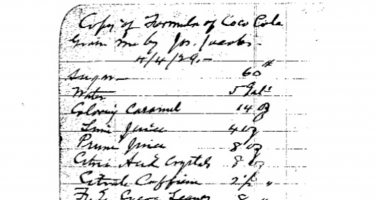 Copy of Formula of Coco Cola
Given me by Jos. Jacobs.
4/4/29.-
Sugar 60 #
Water 5 Gals
Coloring Caramel 14 oz
Lime Juice 4 oz
Prune Juice 8 oz
Citric Acid Crystals 8 oz
Citrate Caffeine 2½ "
F. E. Leaves "